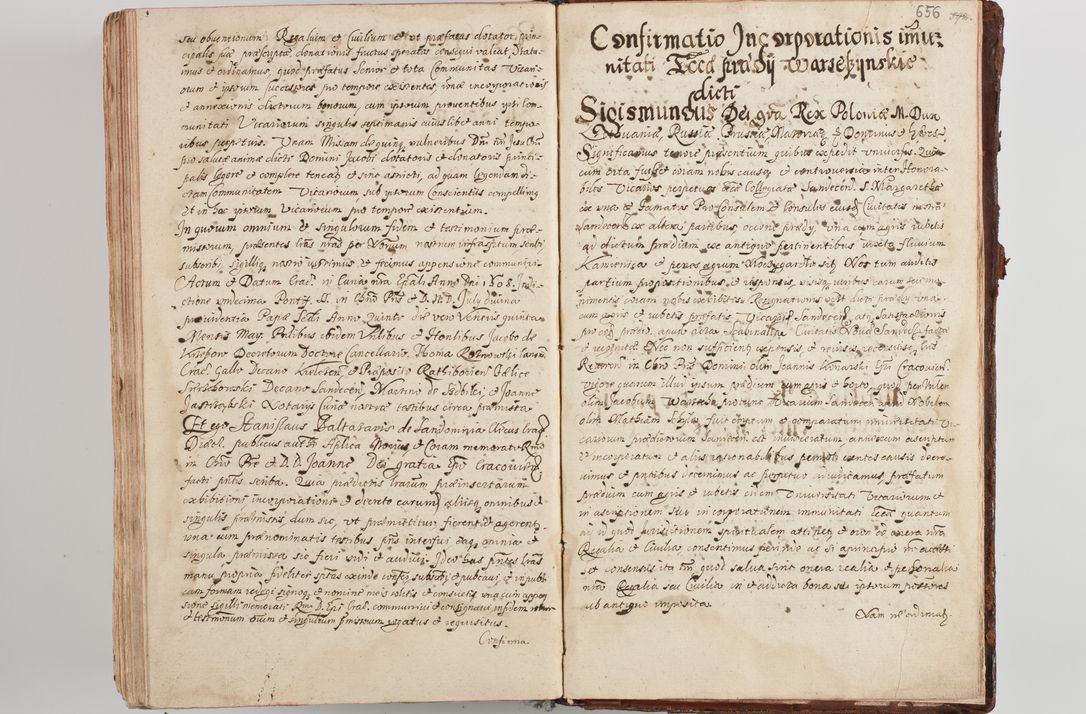 seu obventionem Regalium et Civilium et ut præfatus dotator prin-
cipalis suæ præscriptæ donationis fructus speratos consequi valeat. Statu-
imus et ordinamus, quod præfatus Senior et tota Communitas Vicari-
orum et ipsorum successores pro tempore existentes, vnā incorporationis
et annexionis dictorum bonorum, cum ipsorum proventibus ipsi Com-
munitati Vicariorum singulis septimanis cuiuslibet anni tempo-
ribus perpetuis. Unam Missam de quinq vulneribus Dni
pro salute animæ dicti Domini Jacobi dotatoris et donatoris princi-
palis legere et complere teneāt et sint astricti, ad quam legendam di-
ctam Communitatem Vicariorum sub ipsorum Conscientijs compelling
et in hoc ipsorum Vicariorum pro tempore existentium.
In quorum omnium et singulorum fidem et testimonium præ-
missorum, præsentes lrās nrās per Notarium nostrum infrascriptum scribi
subscribi, sigilliq nostri iussimus et fecimus appensione communiri.
Actum et Datum Crac. in Curia nra Epali Anno Dni 1508. Indi-
ctione undecima Pontif. SS. in Chro Pris et D. N. D. July divina
providentia Papæ Scdi Anno Quinto die vero Veneris quinta
Mensis May. Pntibus ibidem Vnlibus et Honlibus Jacobo de
Decretorum Doctore Cancellario. Thoma Roznowski
Crac. Gallo Decano Kielcen. et Præposito Rathiborien. Felice
Decano Sandecen. Martino de et Joanne
Jastrzębski Notarijs Curiæ nostræ testibus circa præmissa.
Et ego Stanislaus Baltasaris de Sandomiria Clericus Crac.
Diæc. publicus auctte Aplica Notarius et Coram memorato Rmo
in Chro Pre et D. D. Joanne Dei gratia Epo Cracovien.
facti pntis scriba. Quia prædictis lrarum præinsertarum
exhibitioni incorporatione et decreto earum, alijsq omnibus et
singulis præmissis dum sic, ut præmittitur fierent et agerent
vna cum prænominatis testibus pns interfui eaq omnia et
singula præmissa sic fieri vidi et audivi. Ideo has pntes lrās
manu propria fideliter sptas exinde subscripsi et publicavi et in pub
cam formam redegi signoq et nomine meis solitis et consuetis vna cum appen
sione Sigilli memorati Rmi D. Epi Crac. communivi et consignavi in fidem robur
et testimonium oium et singulorum præmissorum rogatus et requisitus.
Confirma-
656
Confirmatio Incorporationis imu-
nitati Eccæ prædij Warsęzynskie
dicti
Sigismundus Dei gra Rex Poloniæ M. Dux
Lithuaniæ, Russiæ Prussiæ Masoviæ et Dominus et hæres
Significamus tenore præsentium quibus expedit vniversis. Quia
cum orta fuisset coram nobis causa et controversia inter Honora-
biles Vicarios perpetuos eccæ Collegiatæ Sandecen. S. Margarethæ
ex vna et Famatos Pro-Consulem et Consules eiusd Civitatis nostræ
Sandecen. ex altera partibus, occōne prædij, Vna cum agris rubetis
ad dictum prædium ex antiquo pertinentibus iuxta fluvium
Kamienica et penes agrum sitj. Nos tum auditis
partium propositionibus et responsis, visisq iuribus earum seu mu-
nimentis coram nobis exhibitis. Resignationis sclt dicti prædij vna
cum agris et rubetis præfatis Vicarijs Sandecen. ac satisfactionis
pro eod prædio, apud acta Scabinalia Civitatis Novæ Sandecz factæ
et Nec non sufficienti expensis, et revisis recessus, lris
Reverēn in Chro Pris Domini olim Joannis Konarski Epi Cracovien.
Vigore quarum illui ipsum prædium cum agris et horto, quod per Nobilem
olim Jacobum Warsecki protunc Vicarium Sandecen. apud Nobilem
olim Mathiam fuit emptum et comparatum universitati Vi-
cariorum prædictorum Sandecen. est inviceratum annexum ascriptum
et incorporatum et alijs rationabilibus permoti certes causis decre-
uimus et pntibus decernimus ac perpetuo iudicamus præfatum
prædium cum agris et rubetis eidem Universitati Vicariorum et
in ascriptionem seu incorporationem immunitati Eccæ quantum
ad id quod jurisditionem spiritualem attinet et onus ex opera nra
Regalia et Civilia, consentimus perinde ac si a principio in eadem
sit consensus ita tñ, quod salva sint onera realia et personalia
nra Regalia seu Civilia in et ad dicta bona seu ipsorum possessores
ab antiquo imposita.
Nam